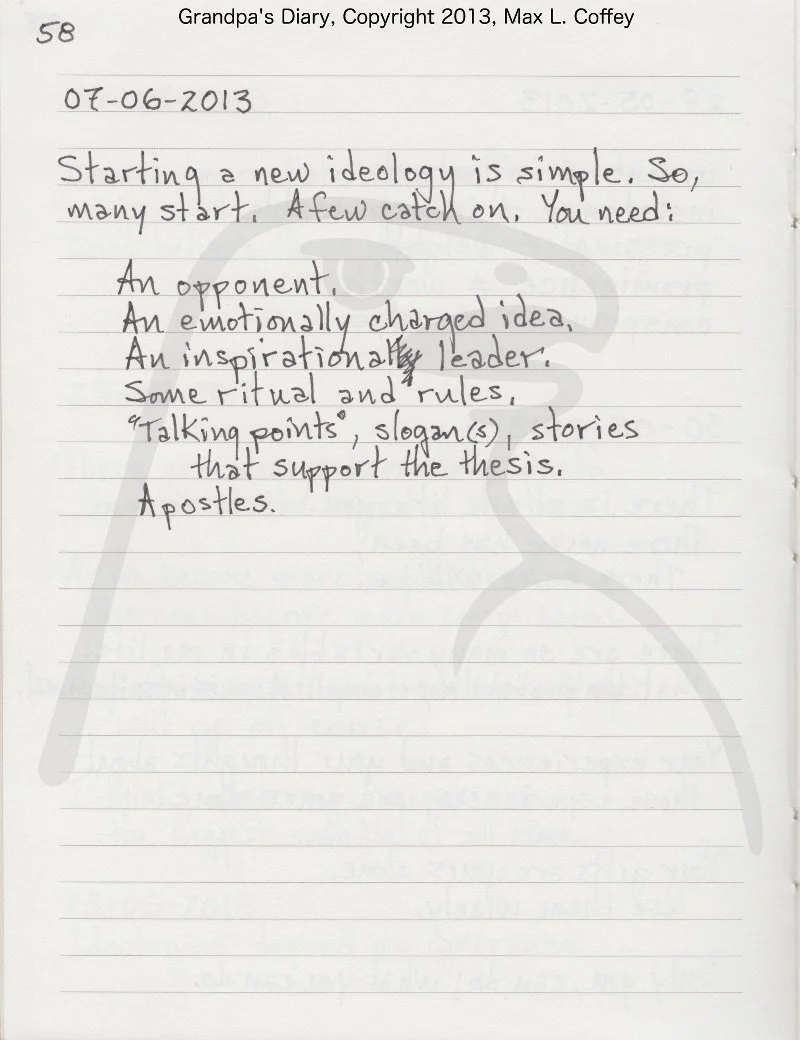 Grandpa's Diary, Copyright 2013, Max L. Coffey
58
07-06-2013
Starting a new ideology is simple. So,
many start. A few catch on. You need:
An opponent.
An emotionally charged idea.
An inspirational leader.
Some ritual and rules.
"Talking points", slogan(s), stories
that support the thesis.
Apostles.